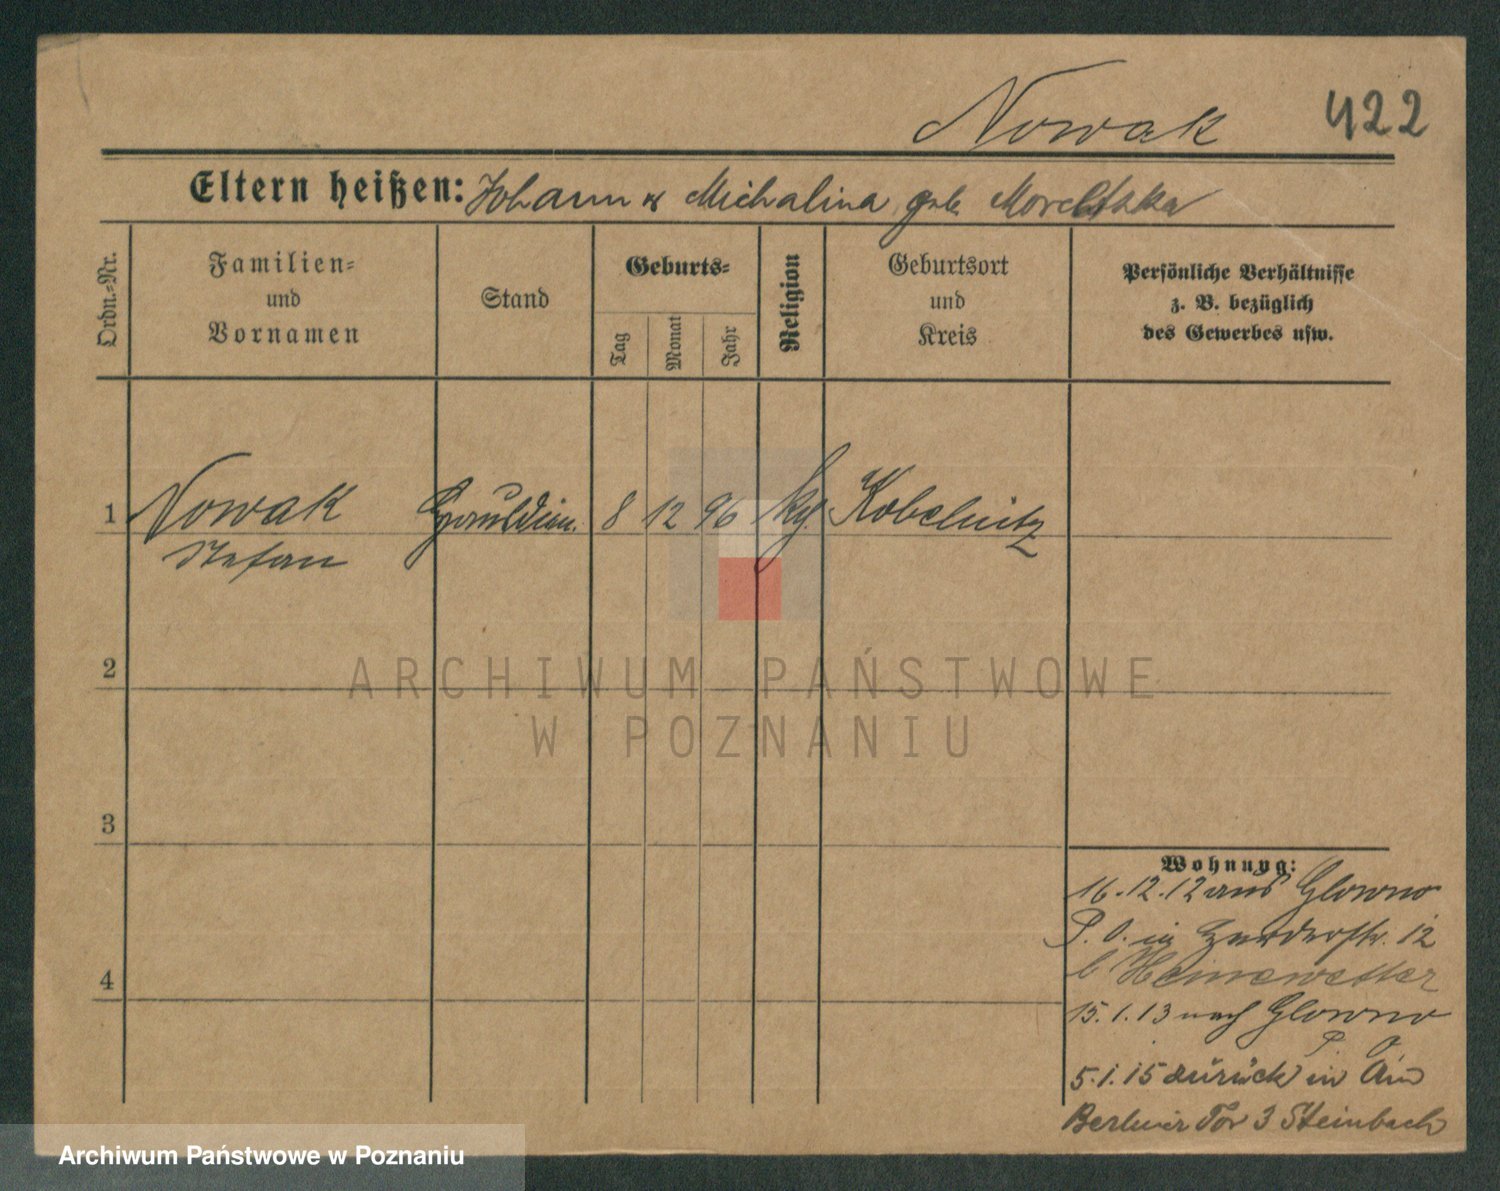 Nowak 422
Eltern heißen: Johann & Michalina geb.
Ordn.-Nr.
Familien-
und
Vornamen
Stand
Geburts-
Tag
Monat
Jahr
Religion
Geburtsort
und
Kreis
Persönliche Verhältnisse
z. B. bezüglich
des Gewerbes usw.
1 Nowak 8 12 96 Kobelnitz
Stefan
2
3
4
Wohnung:
16.12.12 aus Glowno
P. O. in 12
b Heinewetter
15.1.13 nach Glowno
P. O.
5.1.15 zurück in Am
Berliner Tor 3 Steinbach
ARCHIWUM PAŃSTWOWE
W POZNANIU
Archiwum Państwowe w Poznaniu